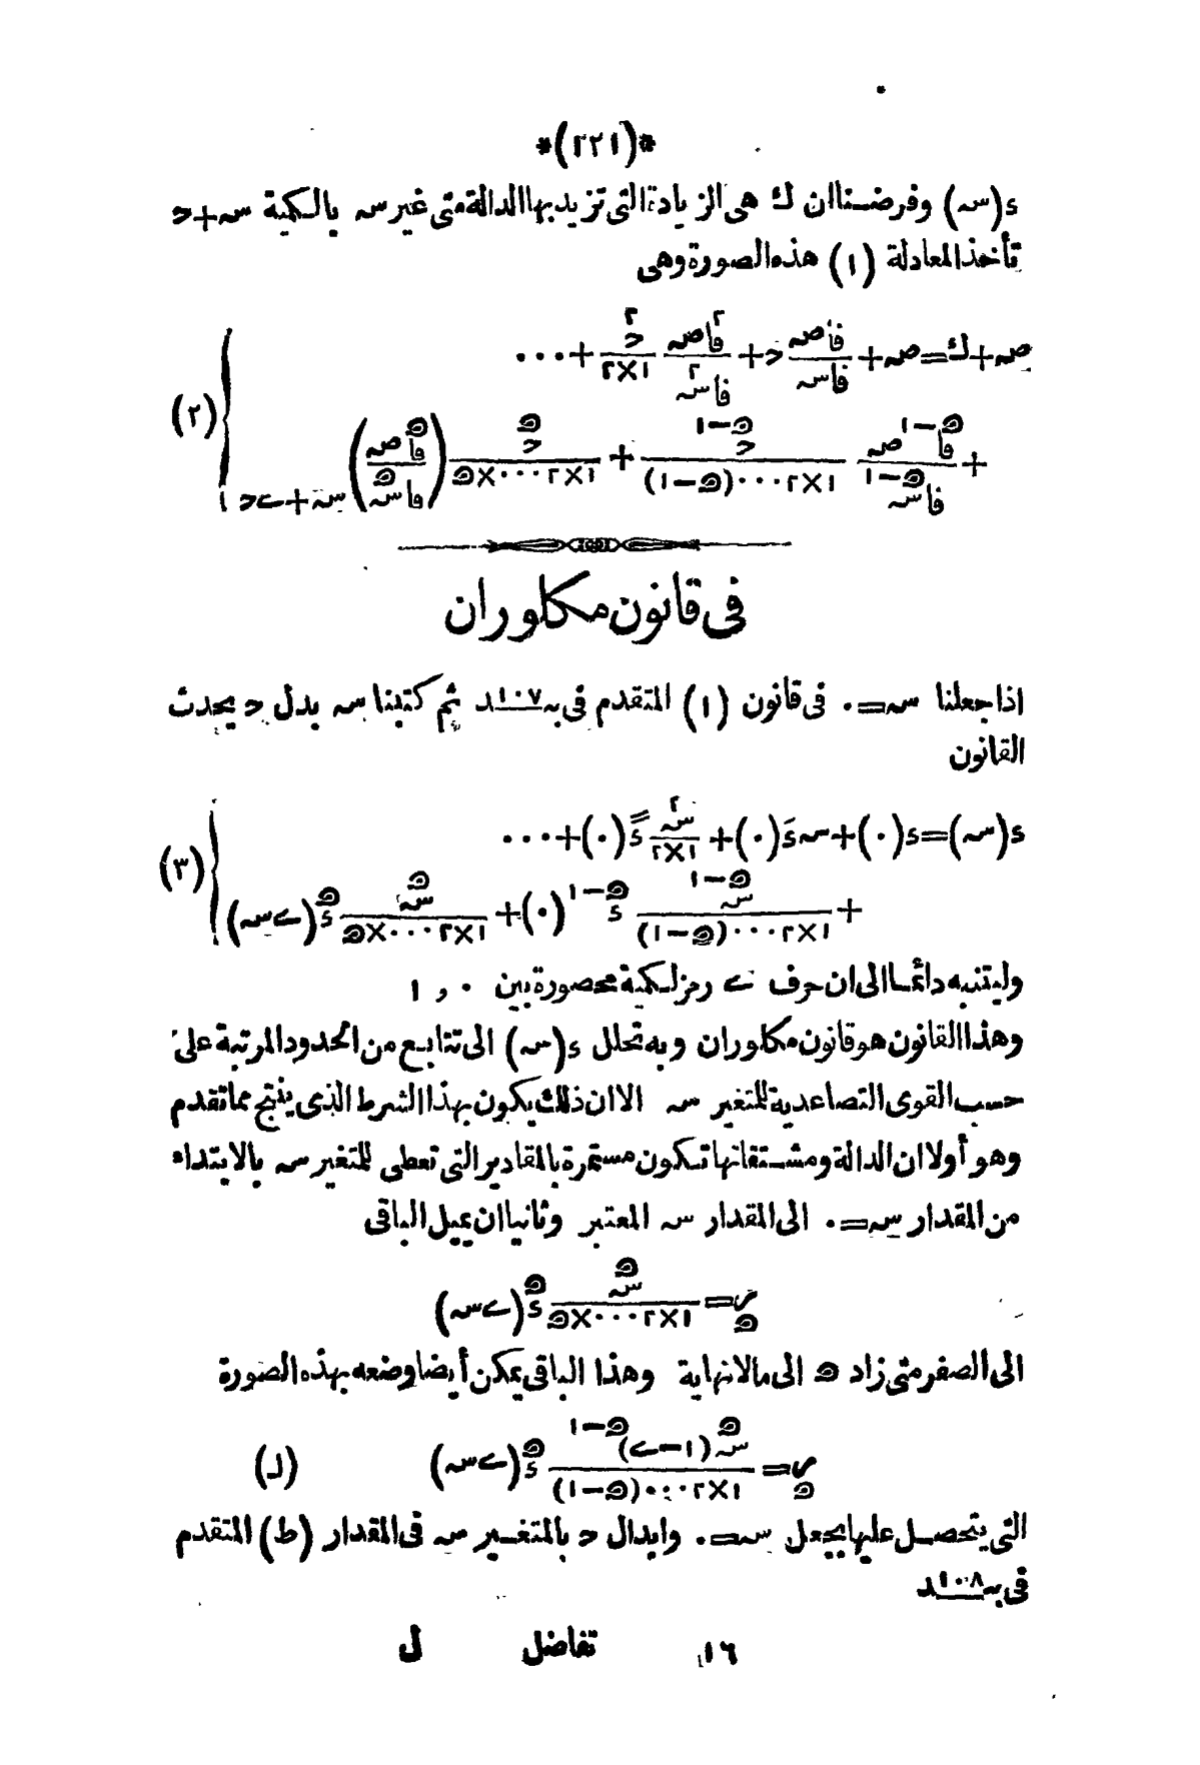 *(١٢٢)*
د(سه) وفرضنا ان ك هى الزيادة التى تزيد بها الدالة متى غير سه بالكمية سه+ح
تأخذ المعادلة (١) هذه الصورة وهى
صه+ك=صه+ فاصه/فاسه ح+ فا٢صه/فاسه٢ ح٢/١×٢ +...
(٢) + فا^(ں-١)صه/فاسه^(ں-١) ح^(ں-١)/١×٢...(ں-١) + ح^ں/١×٢...×ں (فا^ںصه/فاسه^ں) سه+ىح
فى قانون مكلوران
اذا جعلنا سه=٠ فى قانون (١) المتقدم فى بند ١٠٧ ثم كتبنا سه بدل ح يحدث
القانون
د(سه)=د(٠)+سه دَ(٠)+ سه٢/١×٢ دً(٠)+...
(٣) + سه^(ں-١)/١×٢...(ں-١) د^(ں-١)(٠)+ سه^ں/١×٢...×ں د^ں(ى سه)
وليتنبه دائما الى ان حرف ى رمز لكمية محصورة بين ٠ و ١
وهذا القانون هو قانون مكلوران وبه تحلل د(سه) الى تتابع من الحدود المرتبة على
حسب القوى التصاعدية للمتغير سه الا ان ذلك يكون بهذا الشرط الذى ينتج مما تقدم
وهو أولا ان الدالة ومشتقاتها تكون مستمرة بالمقادير التى تعطى للمتغير سه بالابتداء
من المقدار سه=٠ الى المقدار سه المعتبر وثانيا ان يميل الباقى
م^ں= سه^ں/١×٢...×ں د^ں(ى سه)
الى الصفر متى زاد ں الى مالانهاية وهذا الباقى يمكن أيضا وضعه بهذه الصورة
م^ں= سه^ں(١-ى)^(ں-١)/١×٢...(ں-١) د^ں(ى سه) (ل)
التى يتحصل عليها بجعل سه=٠ وابدال ح بالمتغير سه فى المقدار (ط) المتقدم
فى بند ١٠٨
١٦ تفاضل ل